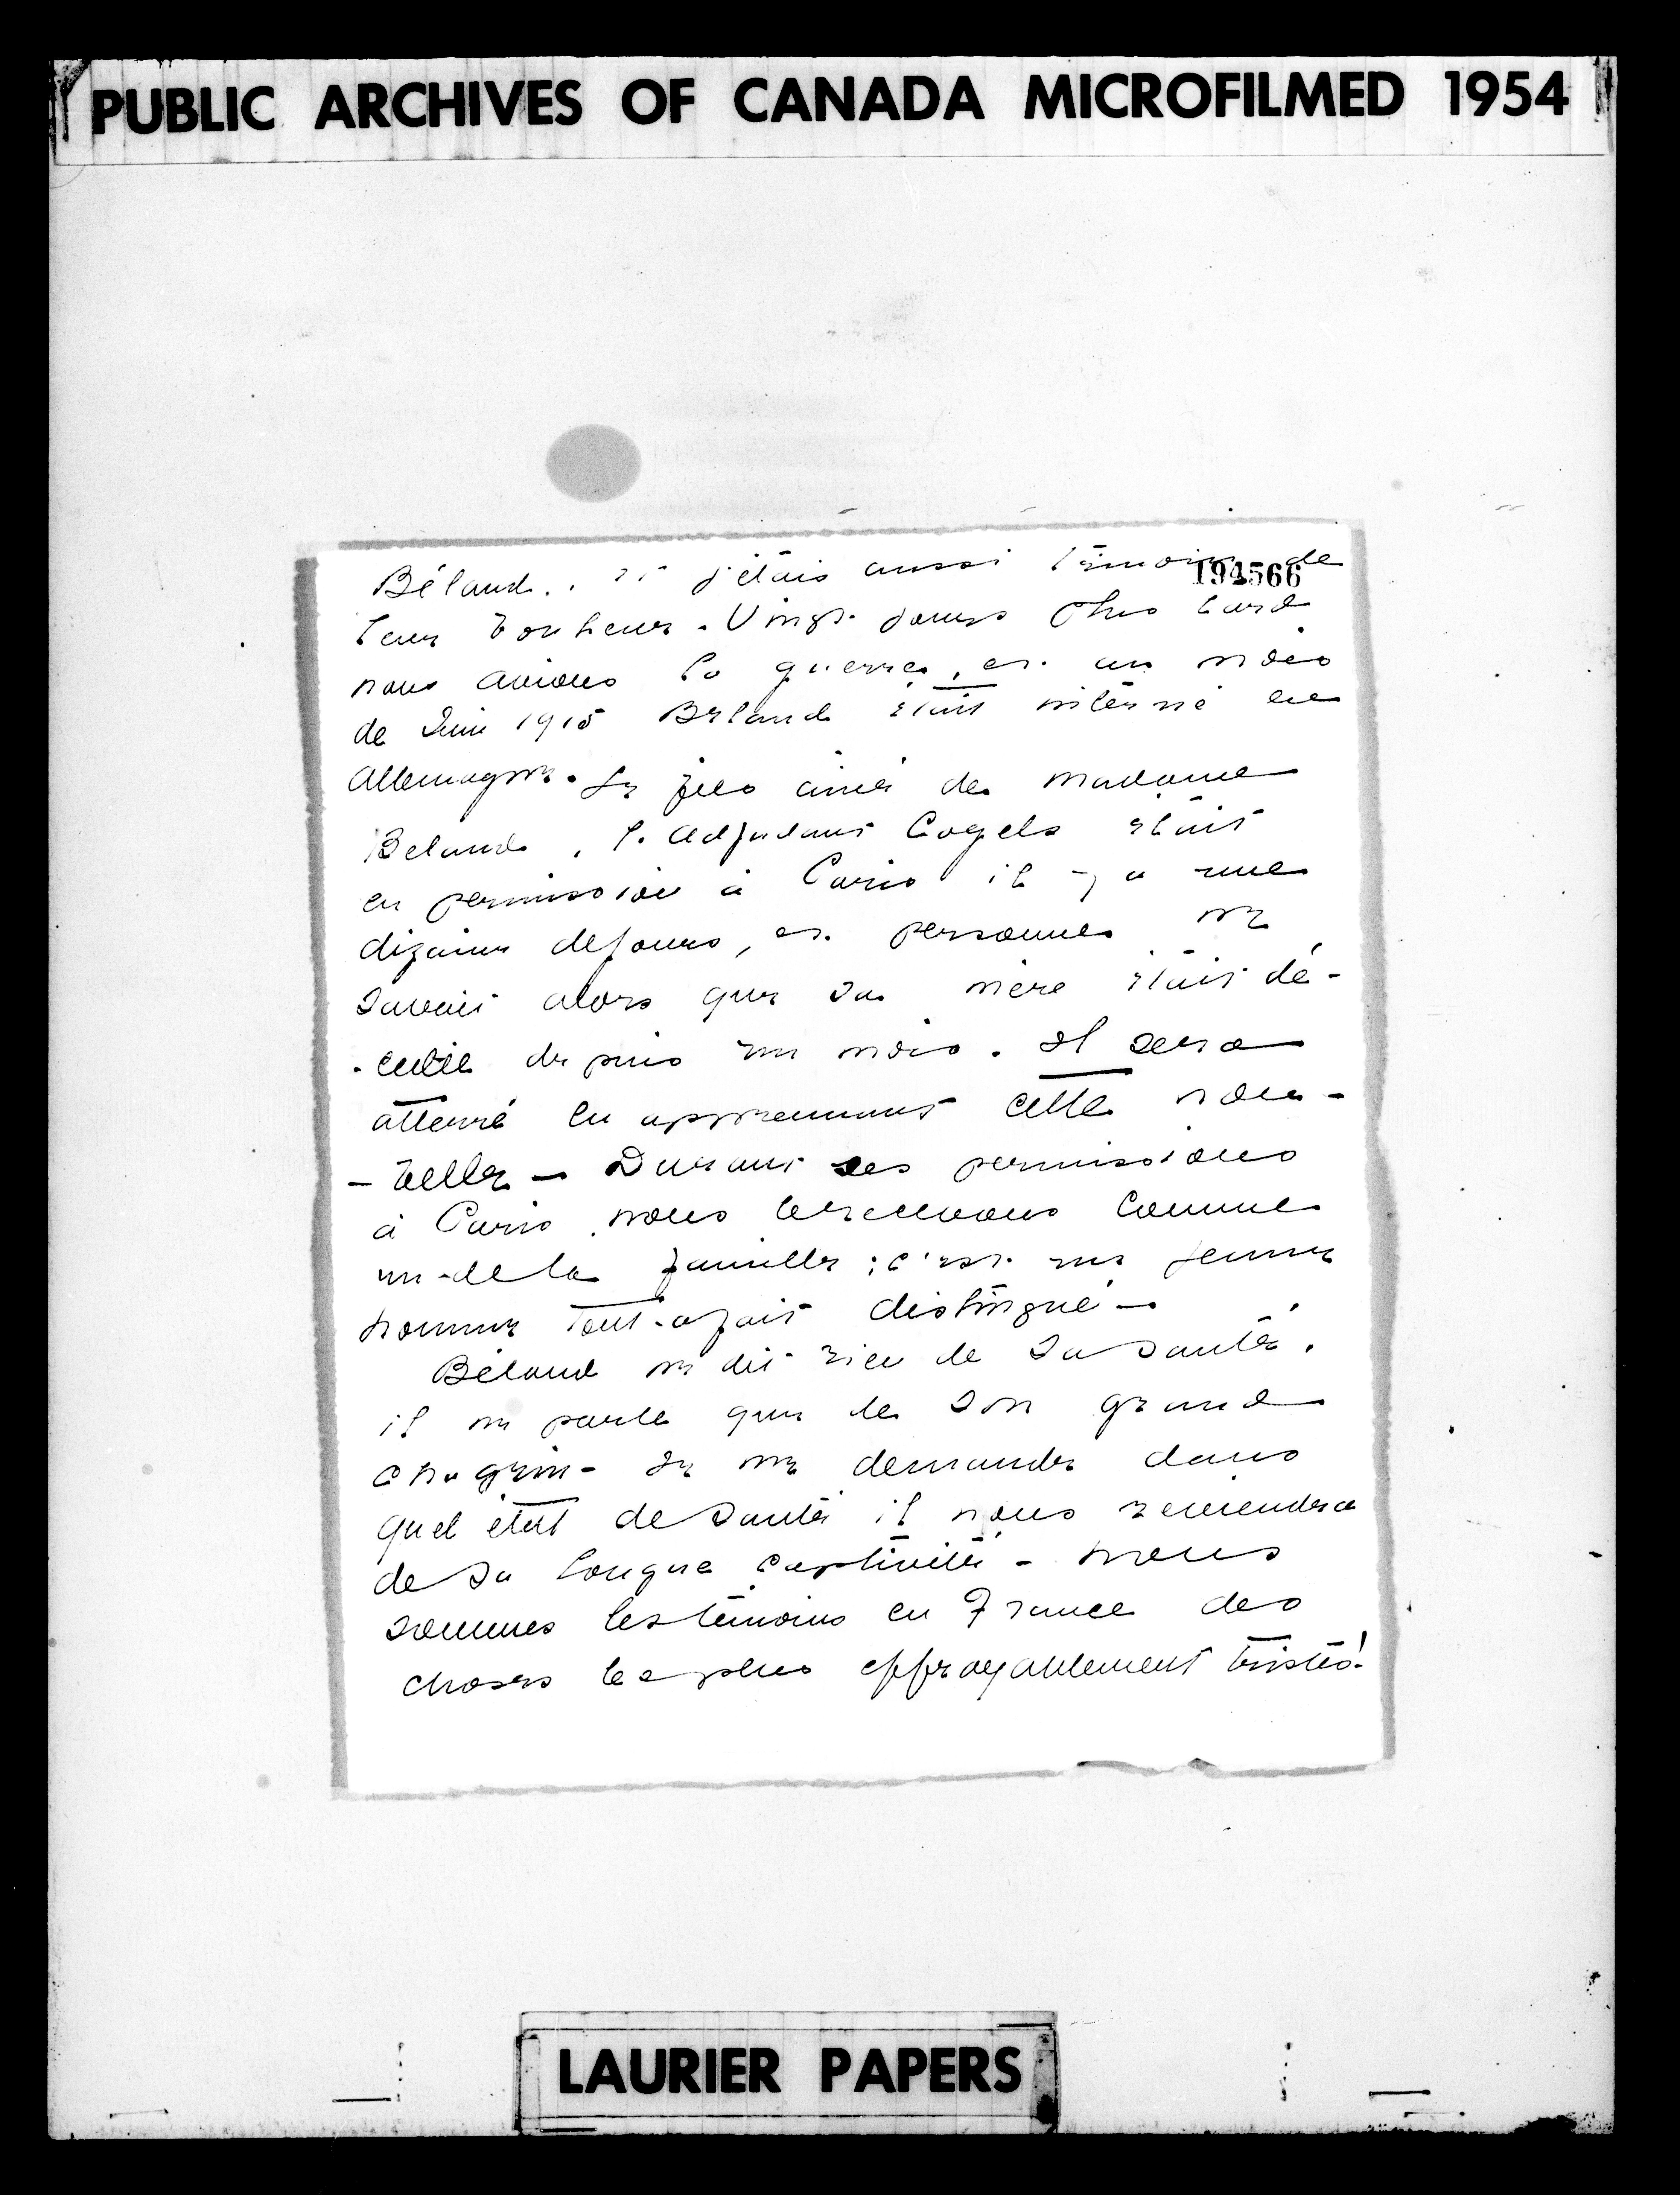 PUBLIC ARCHIVES OF CANADA MICROFILMED 1954
194566
Béland. et j'étais aussi témoin de
leur bonheur. Vingt jours plus tard
nous avions la guerre, et au mois
de Juin 1915 Béland était interné en
Allemagne. Le fils ainé de Madame
Beland, l'Adjudant Cogels était
en permission à Paris il y a une
dizaine de jours, et personne ne
savait alors que sa mère était dé-
-cédée depuis un mois. Il sera
atterré en apprenant cette nou-
-velle — Durant ses permissions
à Paris nous le recevons comme
un de la famille; c'est un jeune
homme tout-à-fait distingué —
Béland ne dit rien de sa santé.
il ne parle que de son grand
chagrin - Je me demande dans
quel état de santé il nous reviendra
de sa longue captivité - Nous
sommes les témoins en France des
choses les plus effroyablement tristes!
LAURIER PAPERS